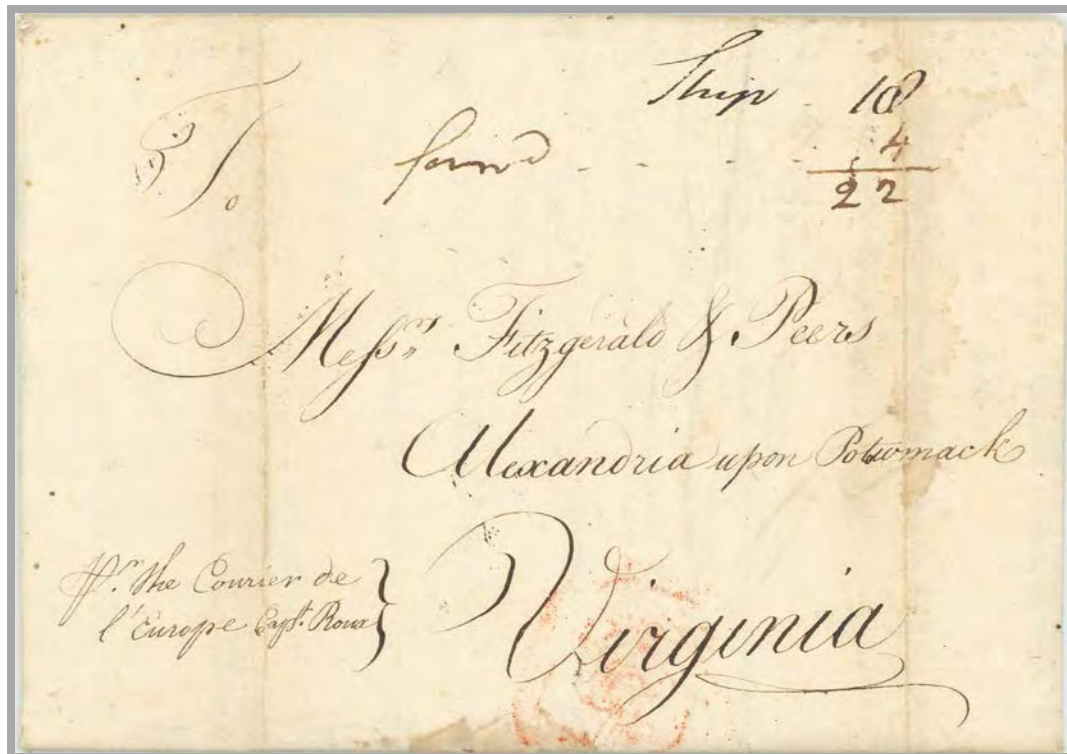 Ship - 18
forwd - - - - 4
22
To
Messrs. Fitzgerald & Peers
Alexandria upon Potowmack
Virginia
Pr. the Courier de
l'Europe Capt. Roux